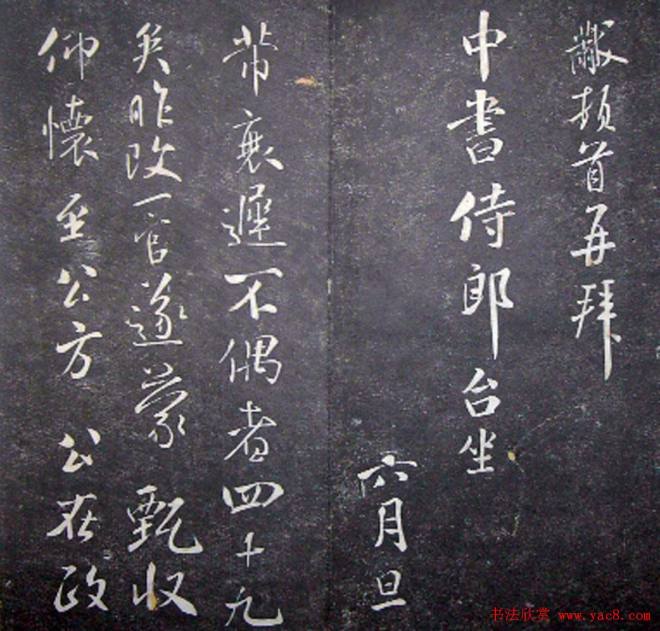 黻頓首再拜
中書侍郎台坐
六月旦
芾衰遲不偶者四十九
矣昨改一官遂蒙 甄收
仰懷至公方 公在政
书法欣赏 www.yac8.com